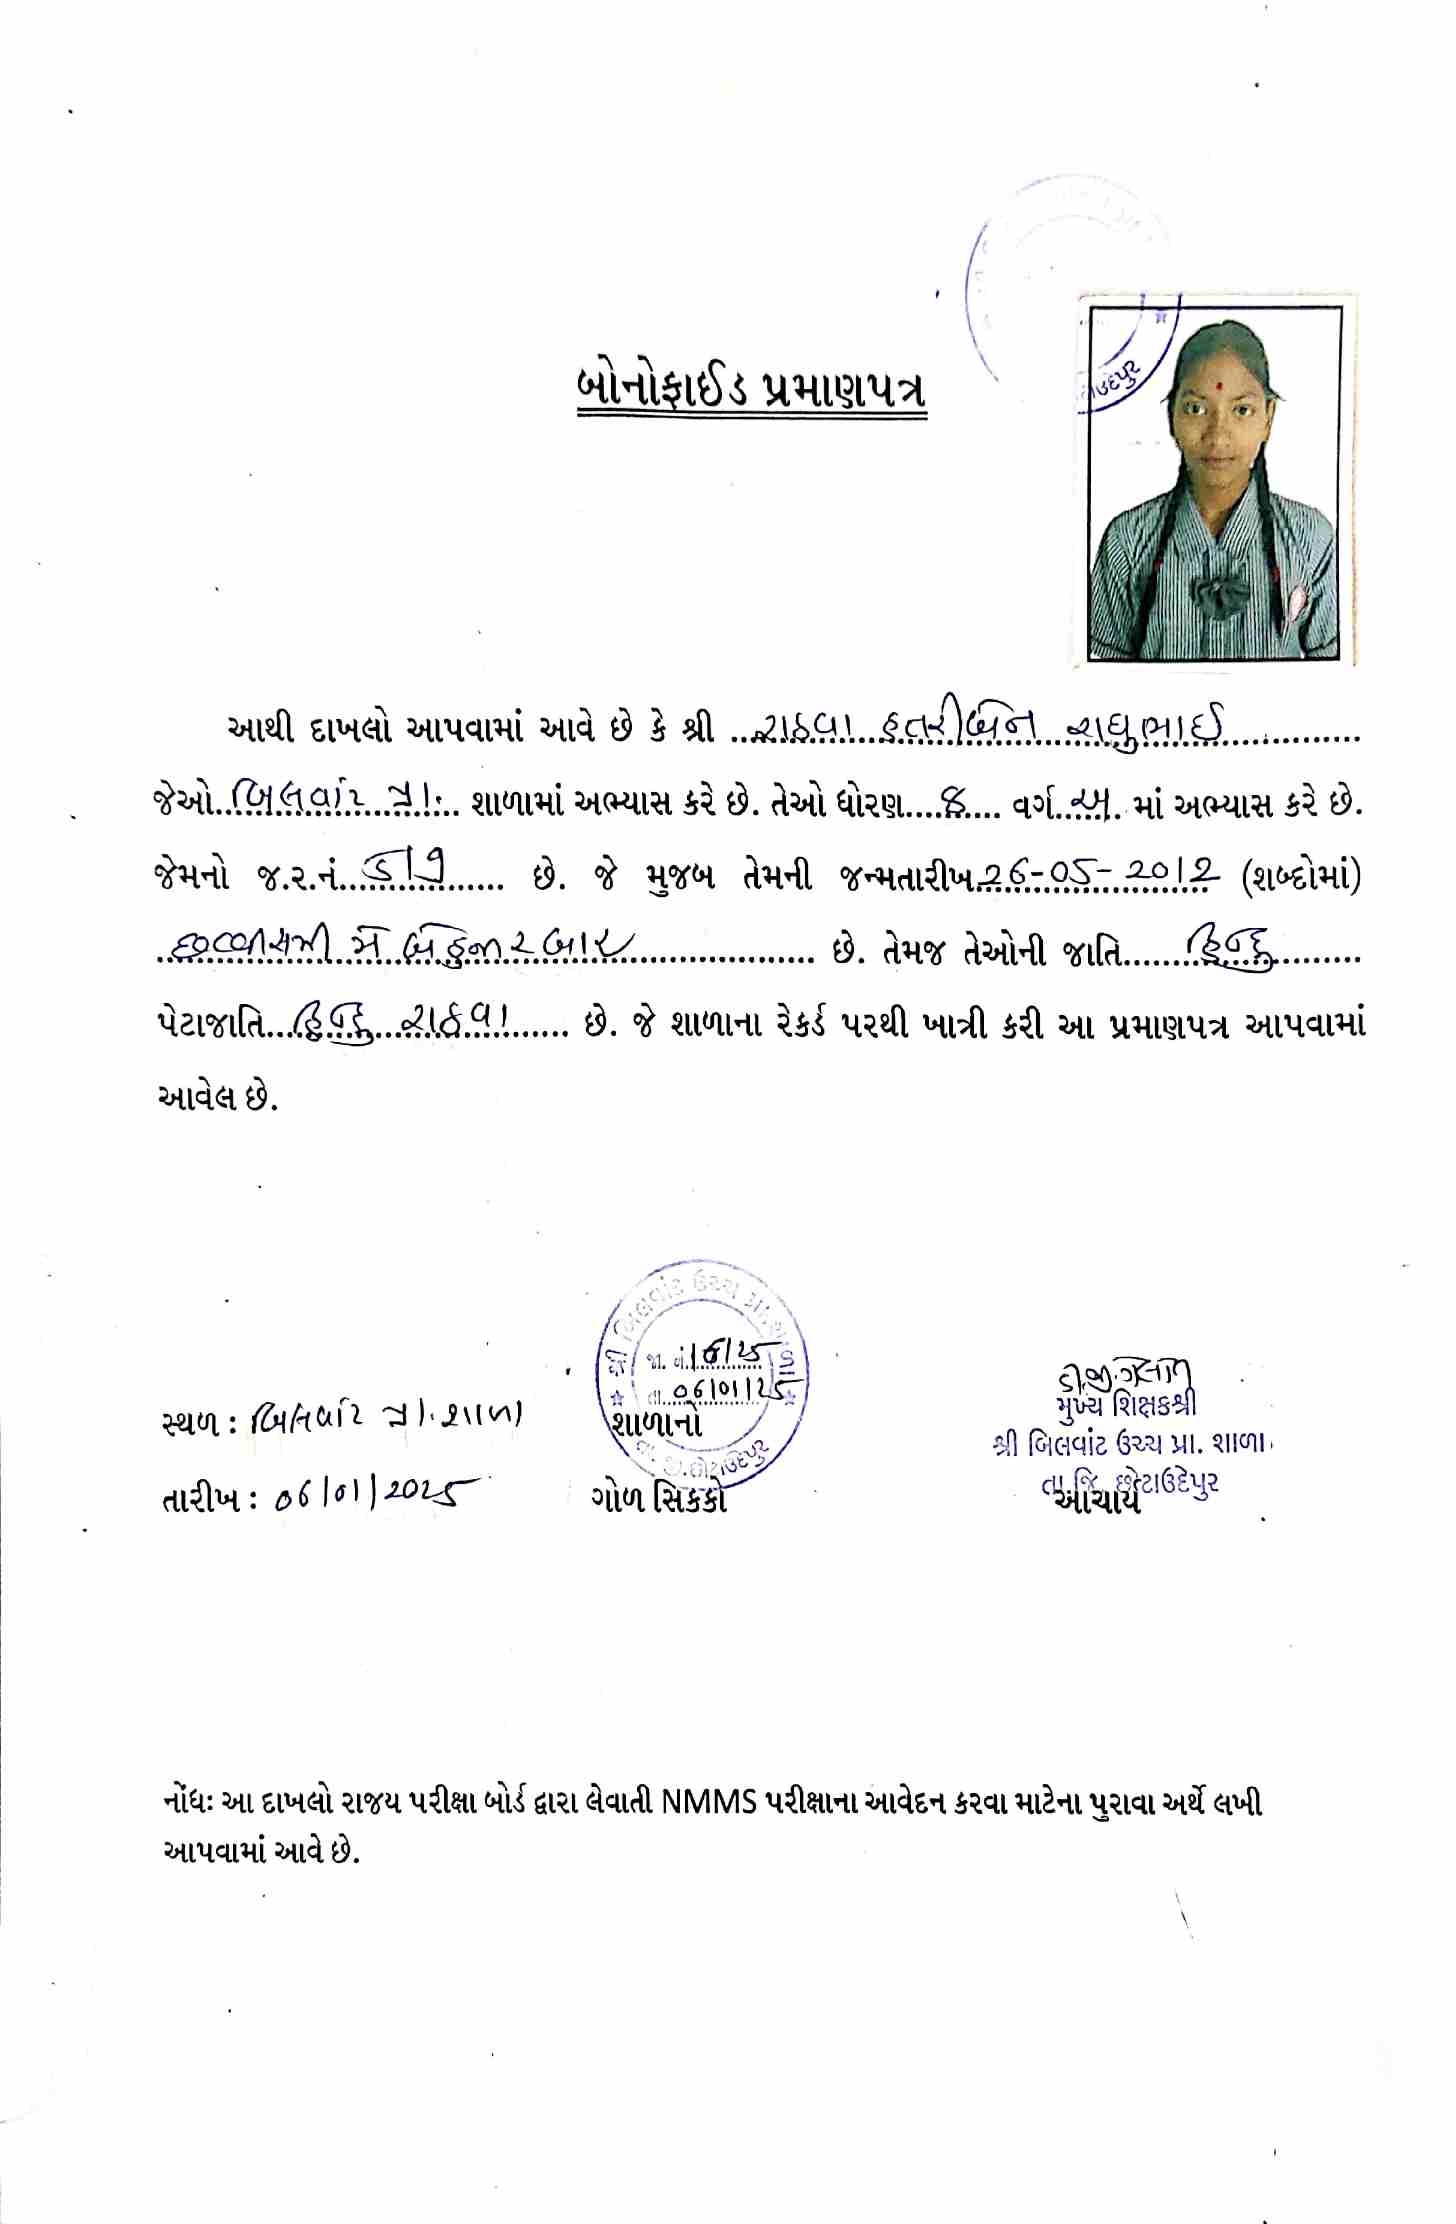 બોનોફાઈડ પ્રમાણપત્ર
આથી દાખલો આપવામાં આવે છે કે શ્રી ..રાઠવા હતરીબેન રાઘુભાઈ..
જેઓ..બિલવાંટ પ્રા... શાળામાં અભ્યાસ કરે છે. તેઓ ધોરણ....૪.... વર્ગ..અ.. માં અભ્યાસ કરે છે.
જેમનો જ.ર.નં........ છે. જે મુજબ તેમની જન્મતારીખ.26-05-2012 (શબ્દોમાં)
..છવ્વીસમી મે બેહજાર બાર.. છે. તેમજ તેઓની જાતિ.....હિન્દુ.....
પેટાજાતિ...હિન્દુ રાઠવા... છે. જે શાળાના રેકર્ડ પરથી ખાત્રી કરી આ પ્રમાણપત્ર આપવામાં
આવેલ છે.
શ્રી બિલવાંટ ઉચ્ચ પ્રા. શાળા
જા. નં.
તા. 06/01/25
તા. જી. છોટાઉદેપુર
સ્થળ : બિલવાંટ પ્રા. શાળા
શાળાનો
તારીખ : 06/01/2025
ગોળ સિક્કો
મુખ્ય શિક્ષકશ્રી
શ્રી બિલવાંટ ઉચ્ચ પ્રા. શાળા.
તા.જિ. છોટાઉદેપુર
આચાર્ય
નોંધઃ આ દાખલો રાજ્ય પરીક્ષા બોર્ડ દ્વારા લેવાતી NMMS પરીક્ષાના આવેદન કરવા માટેના પુરાવા અર્થે લખી
આપવામાં આવે છે.